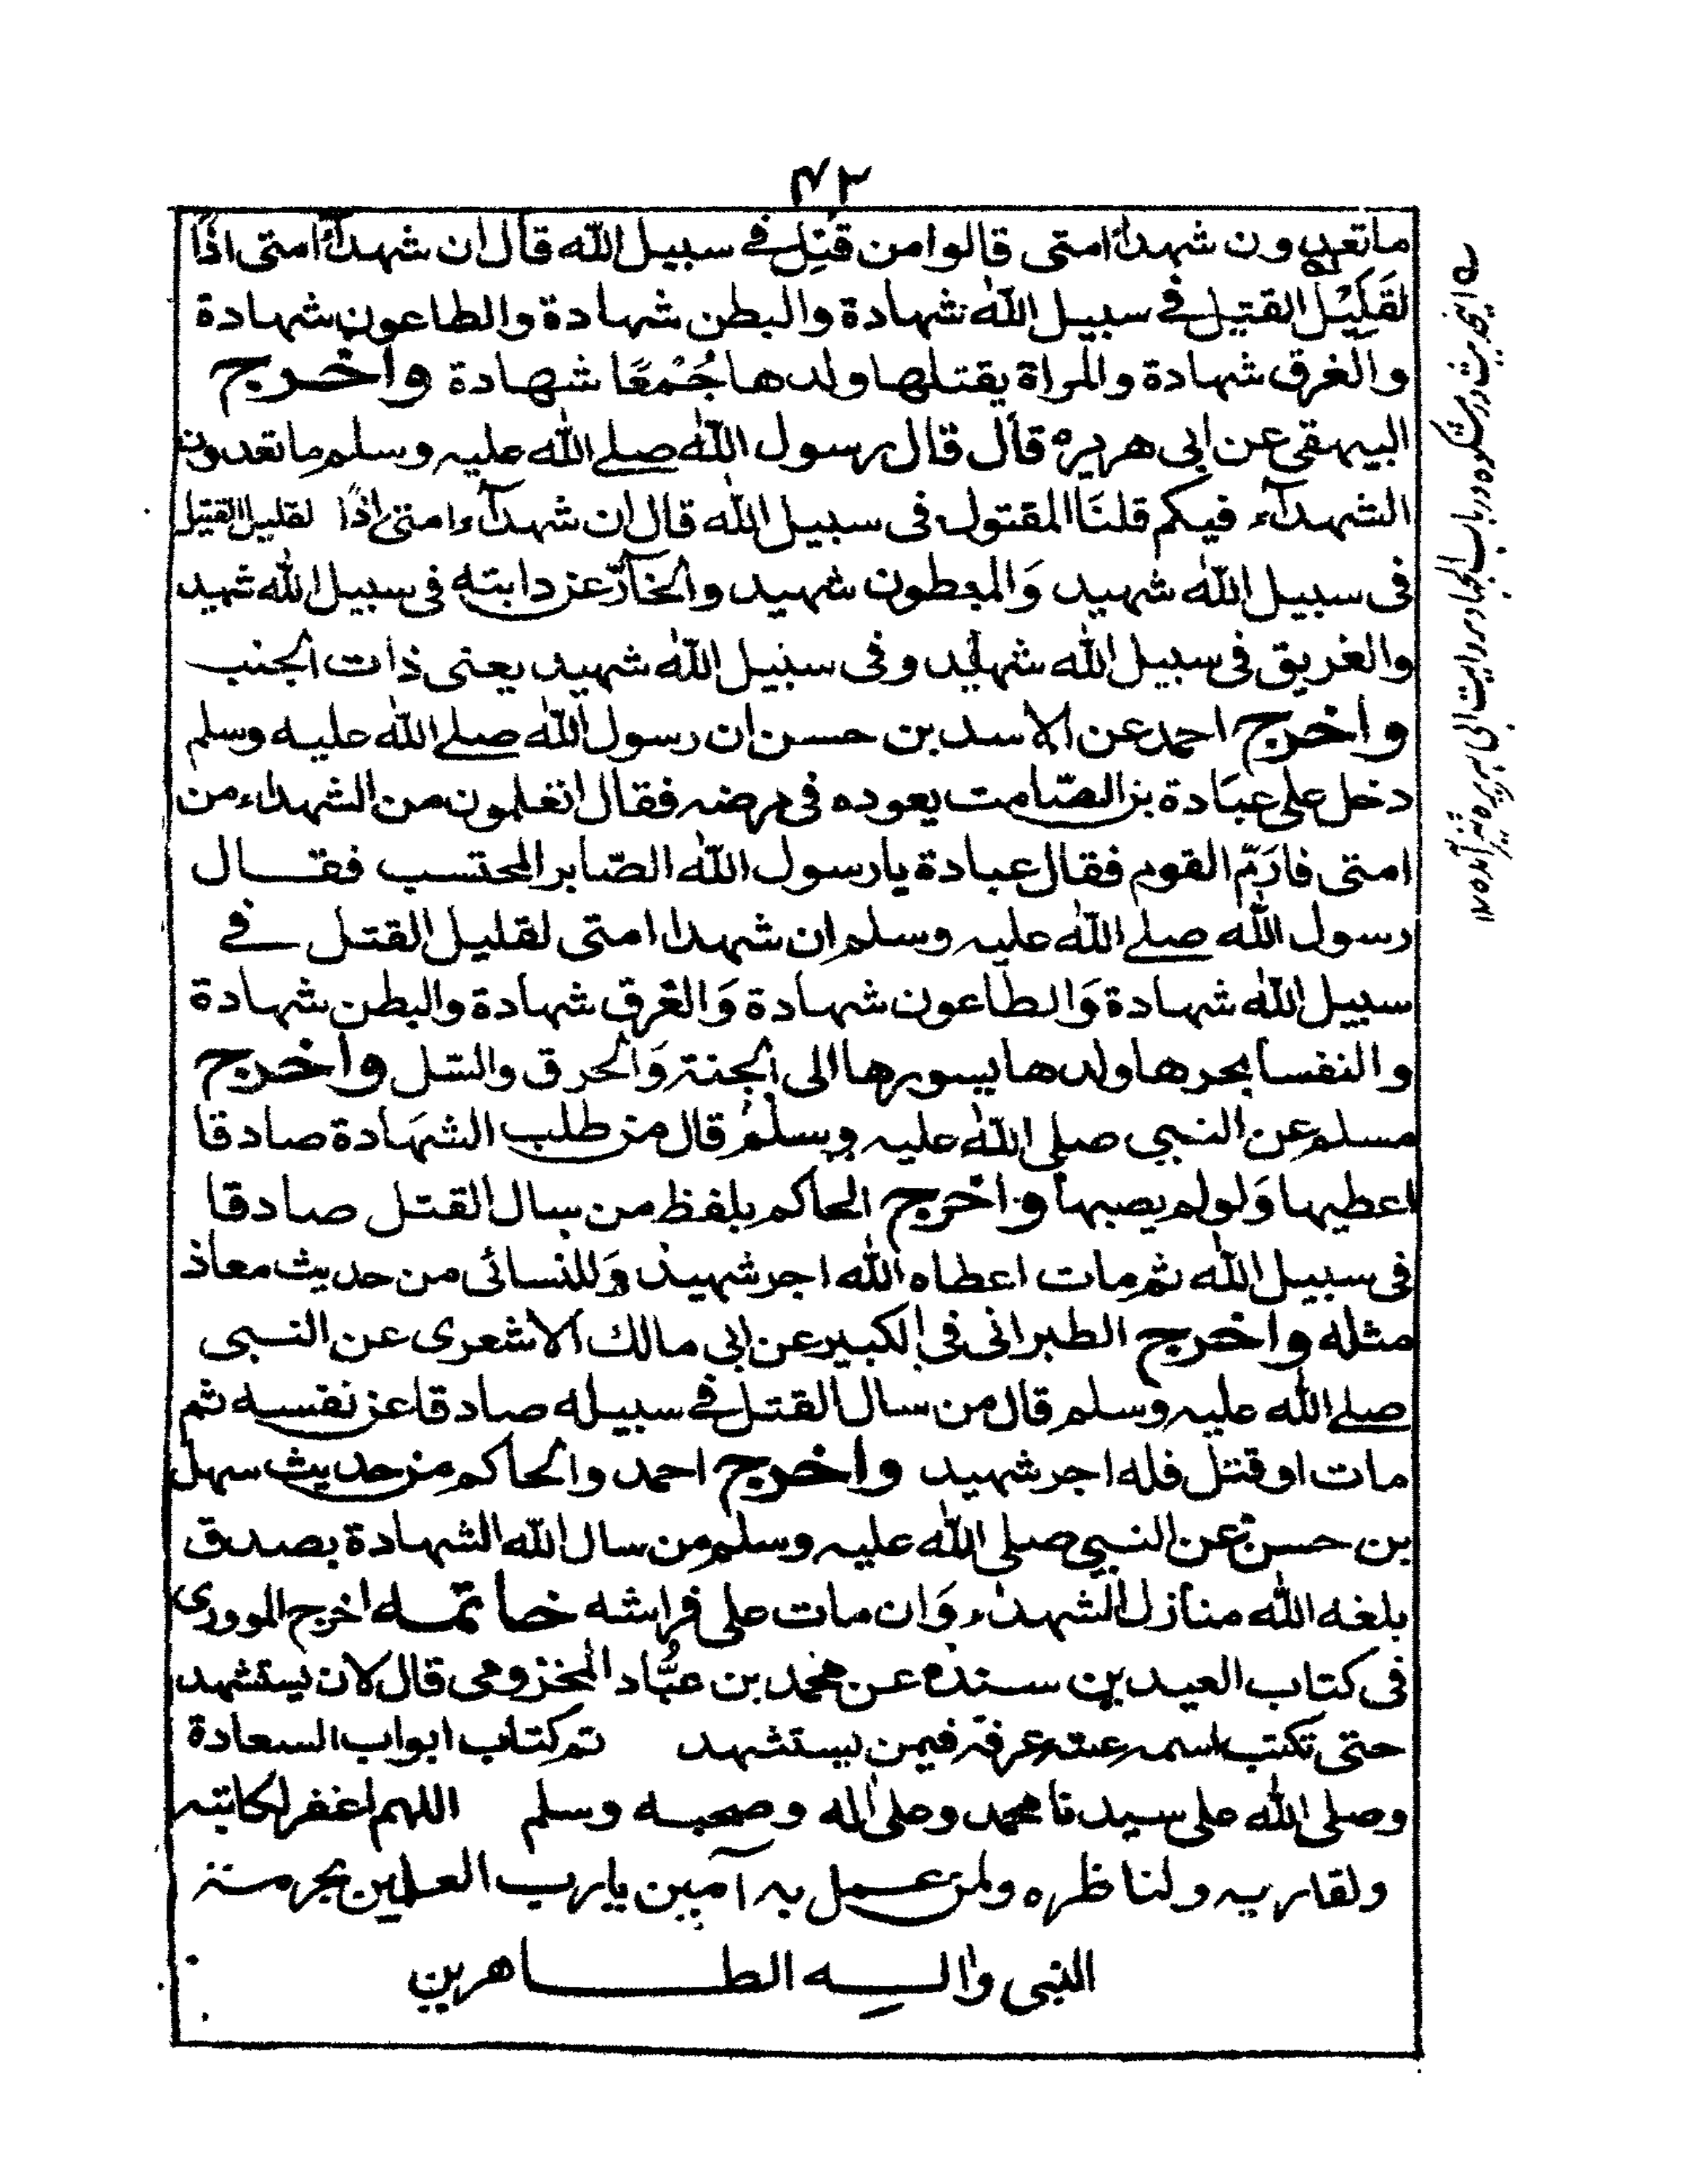 ۴۲
ماتعدون شهداء امتى قالوا من قتل فى سبيل الله قال ان شهداء امتى اذًا
لقَلِيْل القتيل فى سبيل الله شهادة والبطن شهادة والطاعون شهادة
والغرق شهادة والمراة يقتلها ولدها جُمْعًا شهادة واخرج
البيهقى عن ابى هريرة قال قال رسول الله صلے الله عليه وسلم ماتعدون
الشهدآء فيكم قلنَا المقتول فى سبيل الله قال ان شهدآء امتى اذًا لقليل القتيل
فى سبيل الله شهيد وَالمبطون شهيد والخارّ عن دابته فى سبيل الله شهيد
والغريق فى سبيل الله شهيد وفى سبيل الله شهيد يعنى ذات الجنب
واخرج احمد عن الاسد بن حسن ان رسول الله صلے الله عليه وسلم
دخل على عبَادة بن الصّامت يعوده فى مرضه فقال اتعلمون من الشهداء من
امتى فارَمّ القوم فقال عبادة يا رسول الله الصّابر المحتسب فقال
رسول الله صلے الله عليه وسلم ان شهدا امتى لقليل القتل فے
سبيل الله شهادة وَالطاعون شهادة وَالغرق شهادة والبطن شهادة
والنفسا يجرها ولدها بسررها الى الجنة وَالحرق والسّل واخرج
مسلم عن النبى صلى الله عليه وسلم قال من طلب الشهَادة صادقا
اعطيها وَلو لم يصبها واخرج الحاكم بلفظ من سال القتل صادقا
فى سبيل الله ثم مات اعطاه الله اجر شهيد وَللنسائى من حديث معاذ
مثله واخرج الطبرانى فى الكبير عن ابى مالك الاشعرى عن النبى
صلے الله عليه وسلم قال من سال القتل فے سبيله صادقا عن نفسه ثم
مات او قتل فله اجر شهيد واخرج احمد والحاكم من حديث سهل
بن حسن عن النبى صلى الله عليه وسلم من سال الله الشهادة بصدق
بلغه الله منازل الشهداء وَان مات على فراشه خاتمه اخرج المروزى
فى كتاب العيدين سنده عن محمد بن عبَّاد المخزومى قال لان يستشهد
حتى تكتب اسمه عرفة فيمن يستشهد تم كتاب ابواب السعادة
وصلى الله على سيدنا محمد وعلى اله وصحبه وسلم اللهم اغفر لكاتبه
ولقاريه ولناظره ولمن عمل به آمين يا رب العلمين بحرمة
النبى واله الطاهرين
ايحديث در مشكوه در باب الجهاد بروايت ابى هريره نيز آمده ۱۲